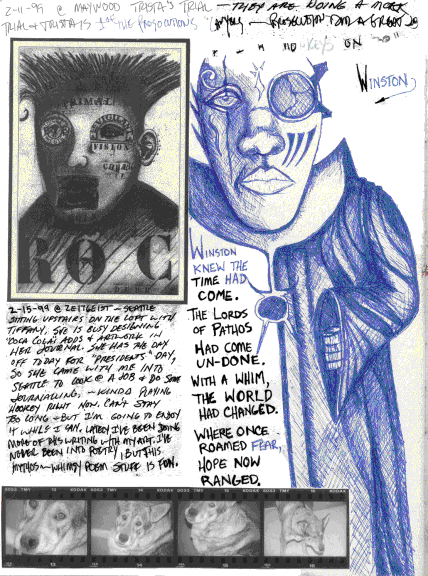 2-11-99 @ MAYWOOD TRISTA'S TRIAL — THEY ARE DOING A MOCK
TRIAL & TRISTA IS 1st THE PROSECUTIONS — PROSECUTION DID A GREAT JOB
ON
WINSTON
PRIMAL
VIGILANT
VISION
ROC
WINSTON
KNEW THE
TIME HAD
COME.
THE LORDS
OF PATHOS
HAD COME
UN-DONE.
WITH A WHIM,
THE WORLD
HAD CHANGED.
WHERE ONCE
ROAMED FEAR,
HOPE NOW
RANGED.
2-15-99 @ ZEITGEIST — SEATTLE
SITTING UPSTAIRS ON THE LOFT WITH
TIFFANY, SHE IS BUSY DESIGNING
"COCA COLA" ADDS & ARTWORK IN
HER JOURNAL. SHE HAS THE DAY
OFF TODAY FOR "PRESIDENTS" DAY,
SO SHE CAME WITH ME INTO
SEATTLE TO LOOK @ A JOB & DO SOME
JOURNALING. — KINDA PLAYING
HOOKEY RIGHT NOW. CAN'T STAY
TOO LONG — BUT I'M GOING TO ENJOY
IT WHILE I CAN. LATELY I'VE BEEN DOING
MORE OF THIS WRITING WITH MY ART. I'VE
NEVER BEEN INTO POETRY, BUT THIS
MYTHOS — WHIMSY POEM STUFF IS FUN.
5053 TMY
KODAK 5053 TMY
KODAK 5053 TMY
KODAK